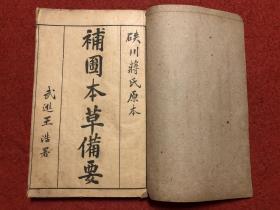 硤川蔣氏原本
補圖本草備要
武進王浩署